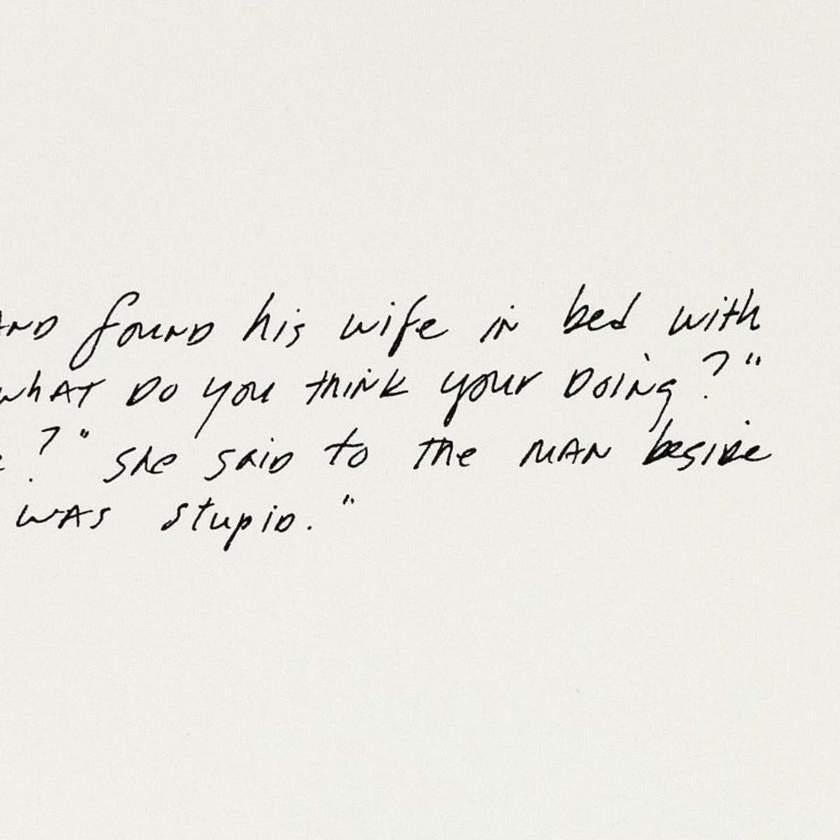 AND found his wife in bed with
what Do you think your Doing?"
?" she said to the MAN beside
was stupid."